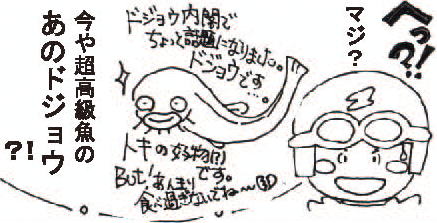 へっ?!
マジ?
ドジョウ内閣で
ちょっと話題になりました。
ドジョウです。
トキの好物(?)
です。
But あんまり
食べ過ぎないでね〜
今や超高級魚の
あのドジョウ
?!